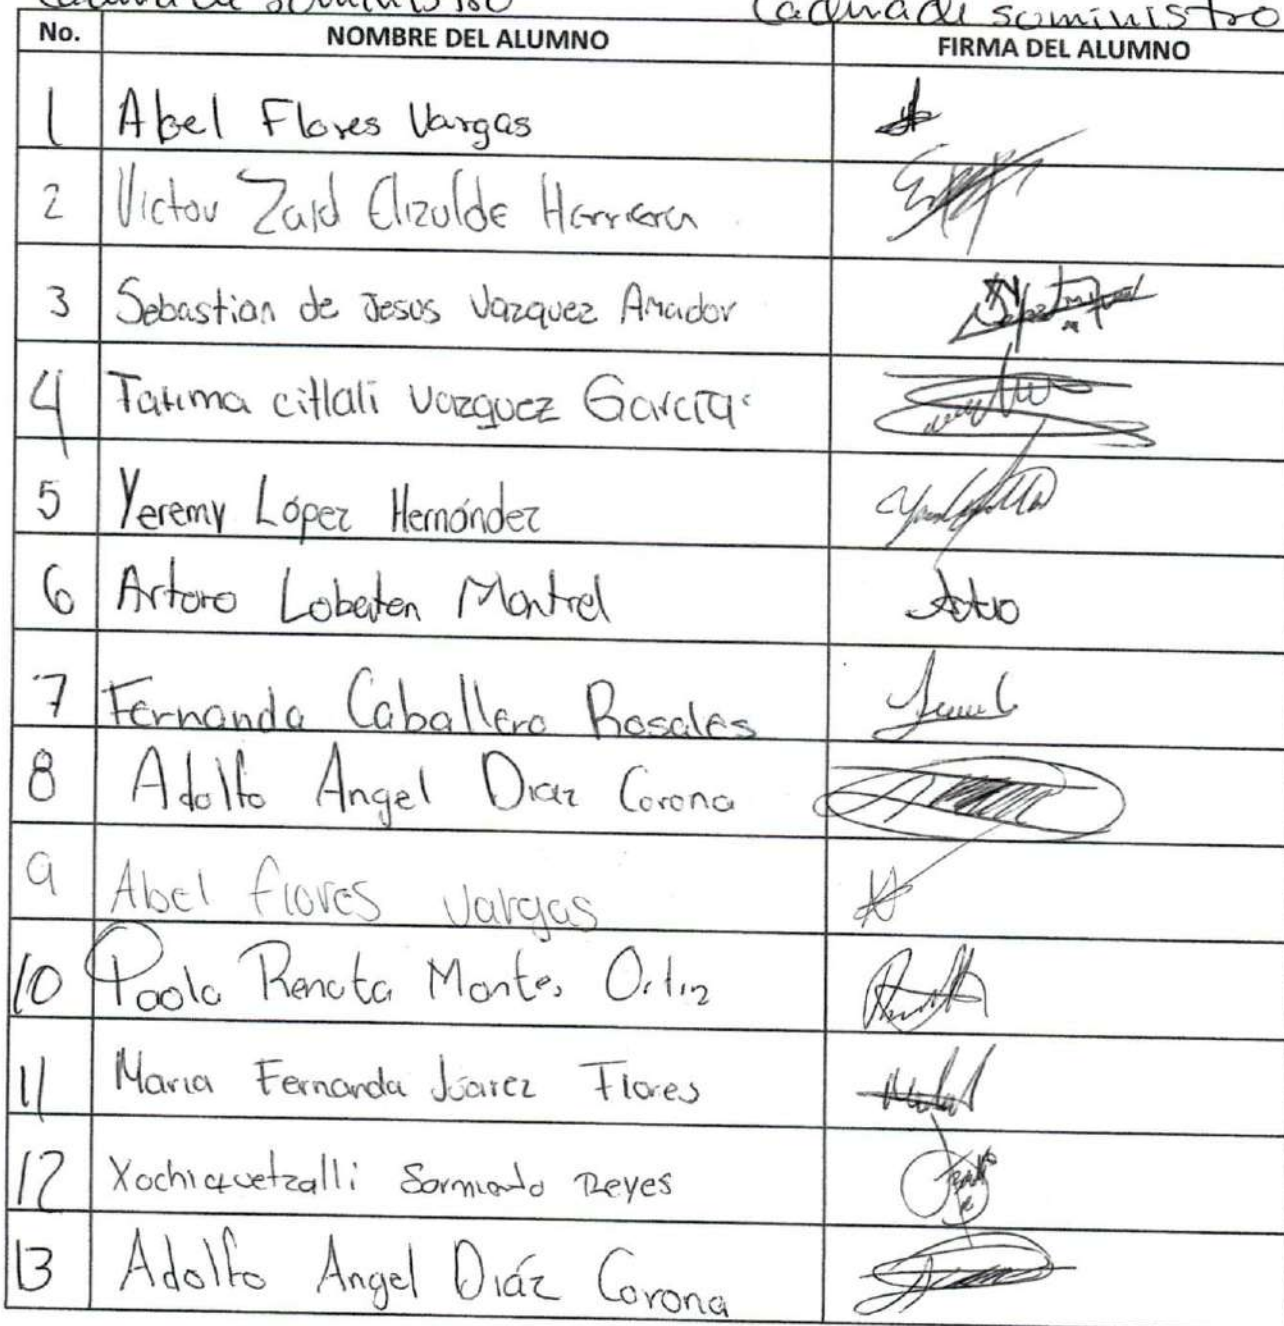 Cadena de suministro Cadena de suministro
No. NOMBRE DEL ALUMNO FIRMA DEL ALUMNO
1 Abel Flores Vargas
2 Victor Zaid Elizalde Herrera
3 Sebastian de Jesus Vazquez Amador
4 Fatima citlali vazquez Garcia
5 Yeremy López Hernández
6 Arturo Lobaten Montiel Arturo
7 Fernanda Caballero Rosales
8 Adolfo Angel Diaz Corona
9 Abel flores vargas
10 Paola Renata Montes Ortiz
11 Maria Fernanda Júarez Flores
12 Xochiquetzalli Sarmiento Reyes
13 Adolfo Angel Diáz Corona